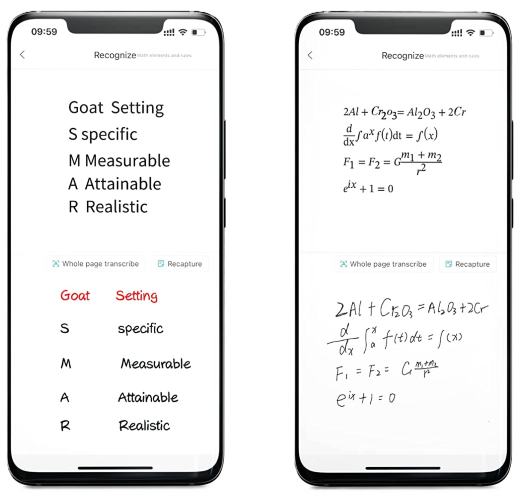 09:59
Recognize Math elements and rules
Goat Setting
S specific
M Measurable
A Attainable
R Realistic
Whole page transcribe Recapture
Goat Setting
S specific
M Measurable
A Attainable
R Realistic
09:59
Recognize Math elements and rules
2Al + Cr₂o₃= Al₂O₃ + 2Cr
d/dx ∫aˣf(t)dt = ∫(x)
F₁ = F₂ = G m₁ + m₂/r²
eⁱˣ + 1 = 0
Whole page transcribe Recapture
2Al + Cr₂O₃ = Al₂O₃ + 2Cr
d/dx ∫ₐˣ f(t)dt = ∫(x)
F₁ = F₂ = G m₁+m₂/r²
eⁱˣ + 1 = 0